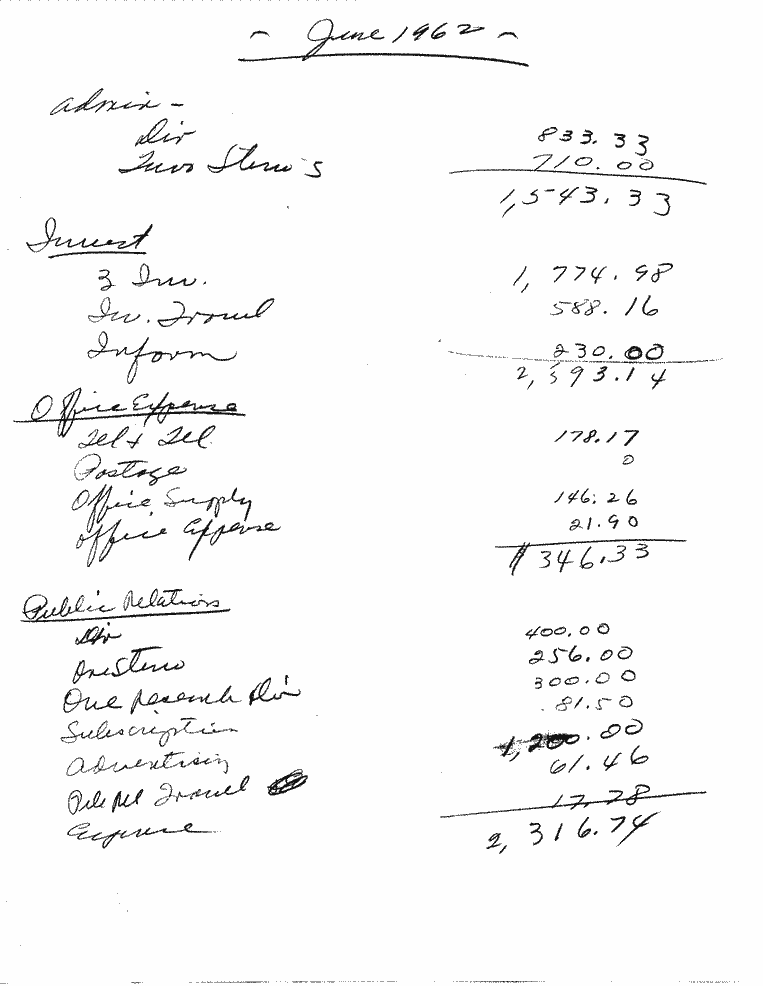 - June 1962 -
Admin -
Dir 833.33
Two Steno's 710.00
1,543.33
Invest
3 Inv. 1,774.98
Inv. Travel 588.16
Inform 230.00
2,593.14
Office Expense
Tel & Tel 178.17
Postage 0
Office Supply 146.26
Office Expense 21.90
346.33
Public Relations
Dir 400.00
One Steno 256.00
One Research Dir 300.00
Subscription 81.50
Advertising 1,200.00
Pub Rel Travel 61.46
Expense 17.78
2,316.74